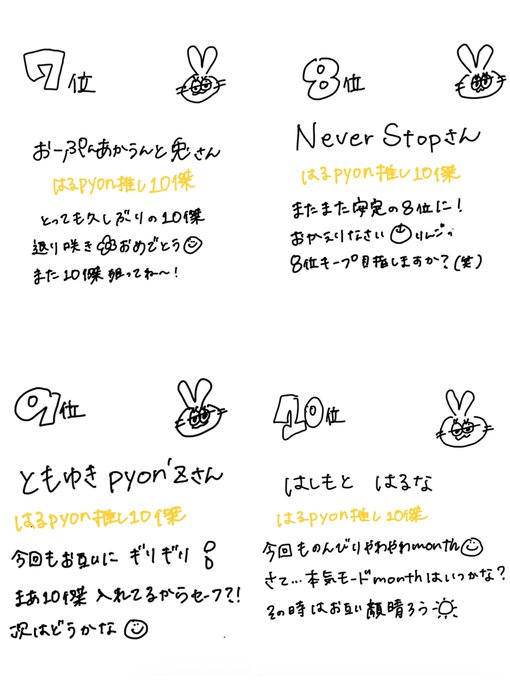 7位
おーぷんあかうんと兎さん
はるpyon推し10傑
とっても久しぶりの10傑
返り咲きおめでとう
また10傑狙ってね〜!
8位
Never Stopさん
はるpyon推し10傑
またまた安定の8位に!
おかえりなさい りんごっ
8位キープ目指しますか?(笑)
9位
ともゆきpyon'zさん
はるpyon推し10傑
今回もお互いに ギリギリ
まあ10傑 入れてるからセーフ?!
次はどうかな
10位
はしもと はるな
はるpyon推し10傑
今回ものんびりやわやわmonth
さて…本気モードmonthはいつかな?
その時はお互い顔晴ろう